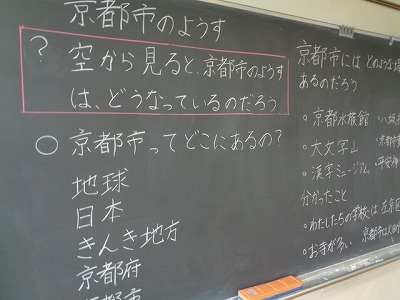 京都市のようす
?
空から見ると、京都市のようす
は、どうなっているのだろう
○京都市ってどこにあるの?
地球
日本
きんき地方
京都府
京都市
京都市には どのような
あるのだろう
・京都水族館 ・八坂
・大文字山 ・京都市
・漢字ミュージアム ・平安神
分かったこと
・わたしたちの学校は左京区
・お寺が多い 京都市は